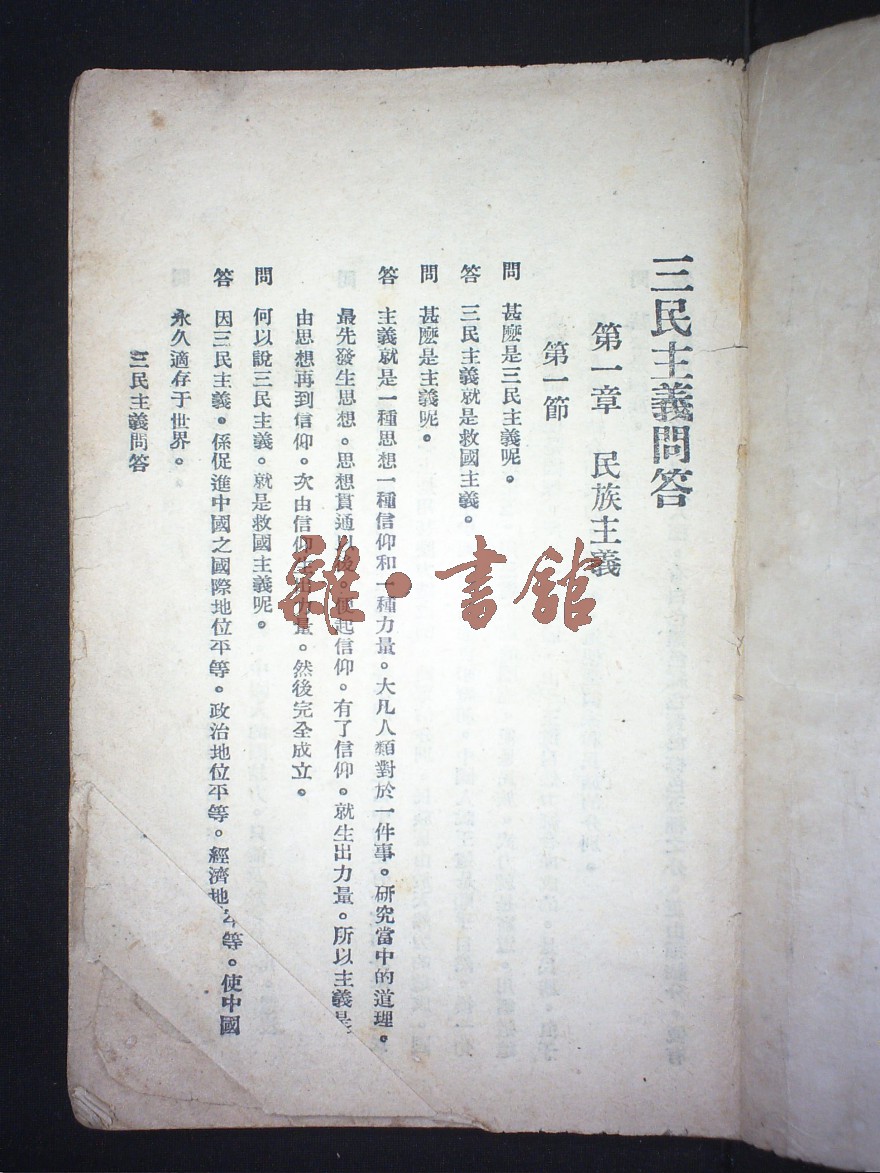 三民主義問答
第一章 民族主義
第一節
問 甚麼是三民主義呢。
答 三民主義就是救國主義。
問 甚麼是主義呢。
答 主義就是一種思想一種信仰和一種力量。大凡人類對於一件事。研究當中的道理。
最先發生思想。思想貫通以後。便起信仰。有了信仰。就生出力量。所以主義是
由思想再到信仰。次由信仰生出力量。然後完全成立。
問 何以說三民主義。就是救國主義呢。
答 因三民主義。係促進中國之國際地位平等。政治地位平等。經濟地平等。使中國
永久適存于世界。
三民主義問答
雜·書館